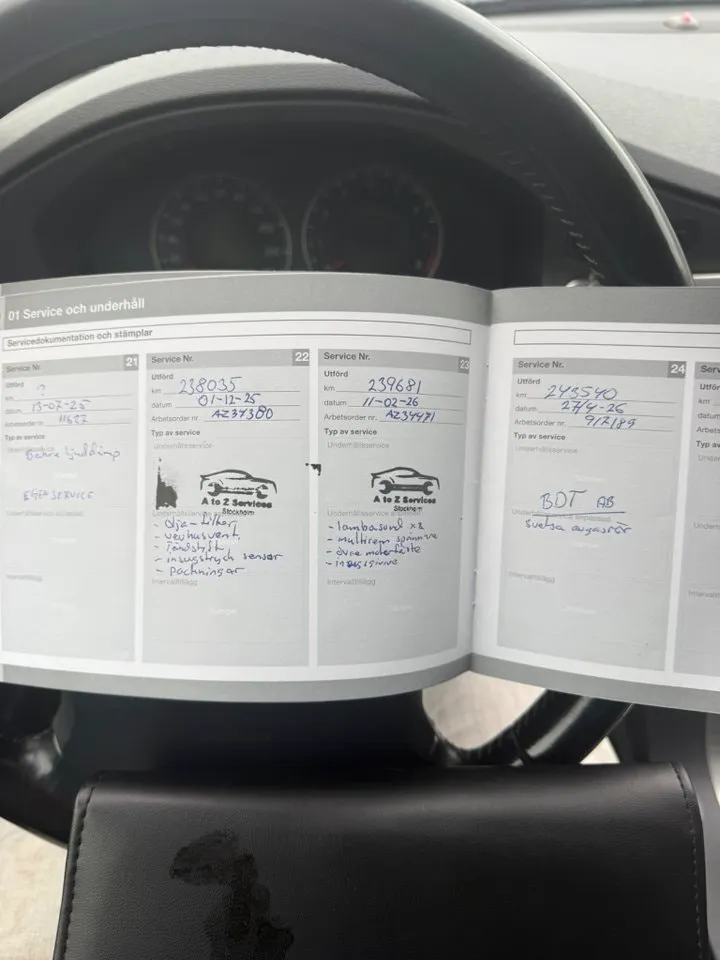 01 Service och underhåll
Servicedokumentation och stämplar
Service Nr. 21
Utförd
km ?
datum 13-07-25
Arbetsorder nr.
Typ av service
Bakre ljuddämp
EGEN SERVICE
Service Nr. 22
Utförd
km 238035
datum 01-12-25
Arbetsorder nr. AZ37380
Typ av service
Underhållsservice
A to Z Services
Stockholm
- olja-filter
- vevhusvent.
- Tändstift
- insugstryck sensor
- packningar
Intervalltillägg
Service Nr. 23
Utförd
km 239681
datum 11-02-26
Arbetsorder nr. AZ34471
Typ av service
Underhållsservice
A to Z Services
Stockholm
- lambdasond x2
- multirem spännare
- övre motorfäste
Intervalltillägg
Service Nr. 24
Utförd
km 243540
datum 27/4-26
Arbetsorder nr. 917189
Typ av service
Underhållsservice
BDT AB
svetsa avgasrör
Intervalltillägg
Serv
Utförd
km
datum
Arbets
Typ av